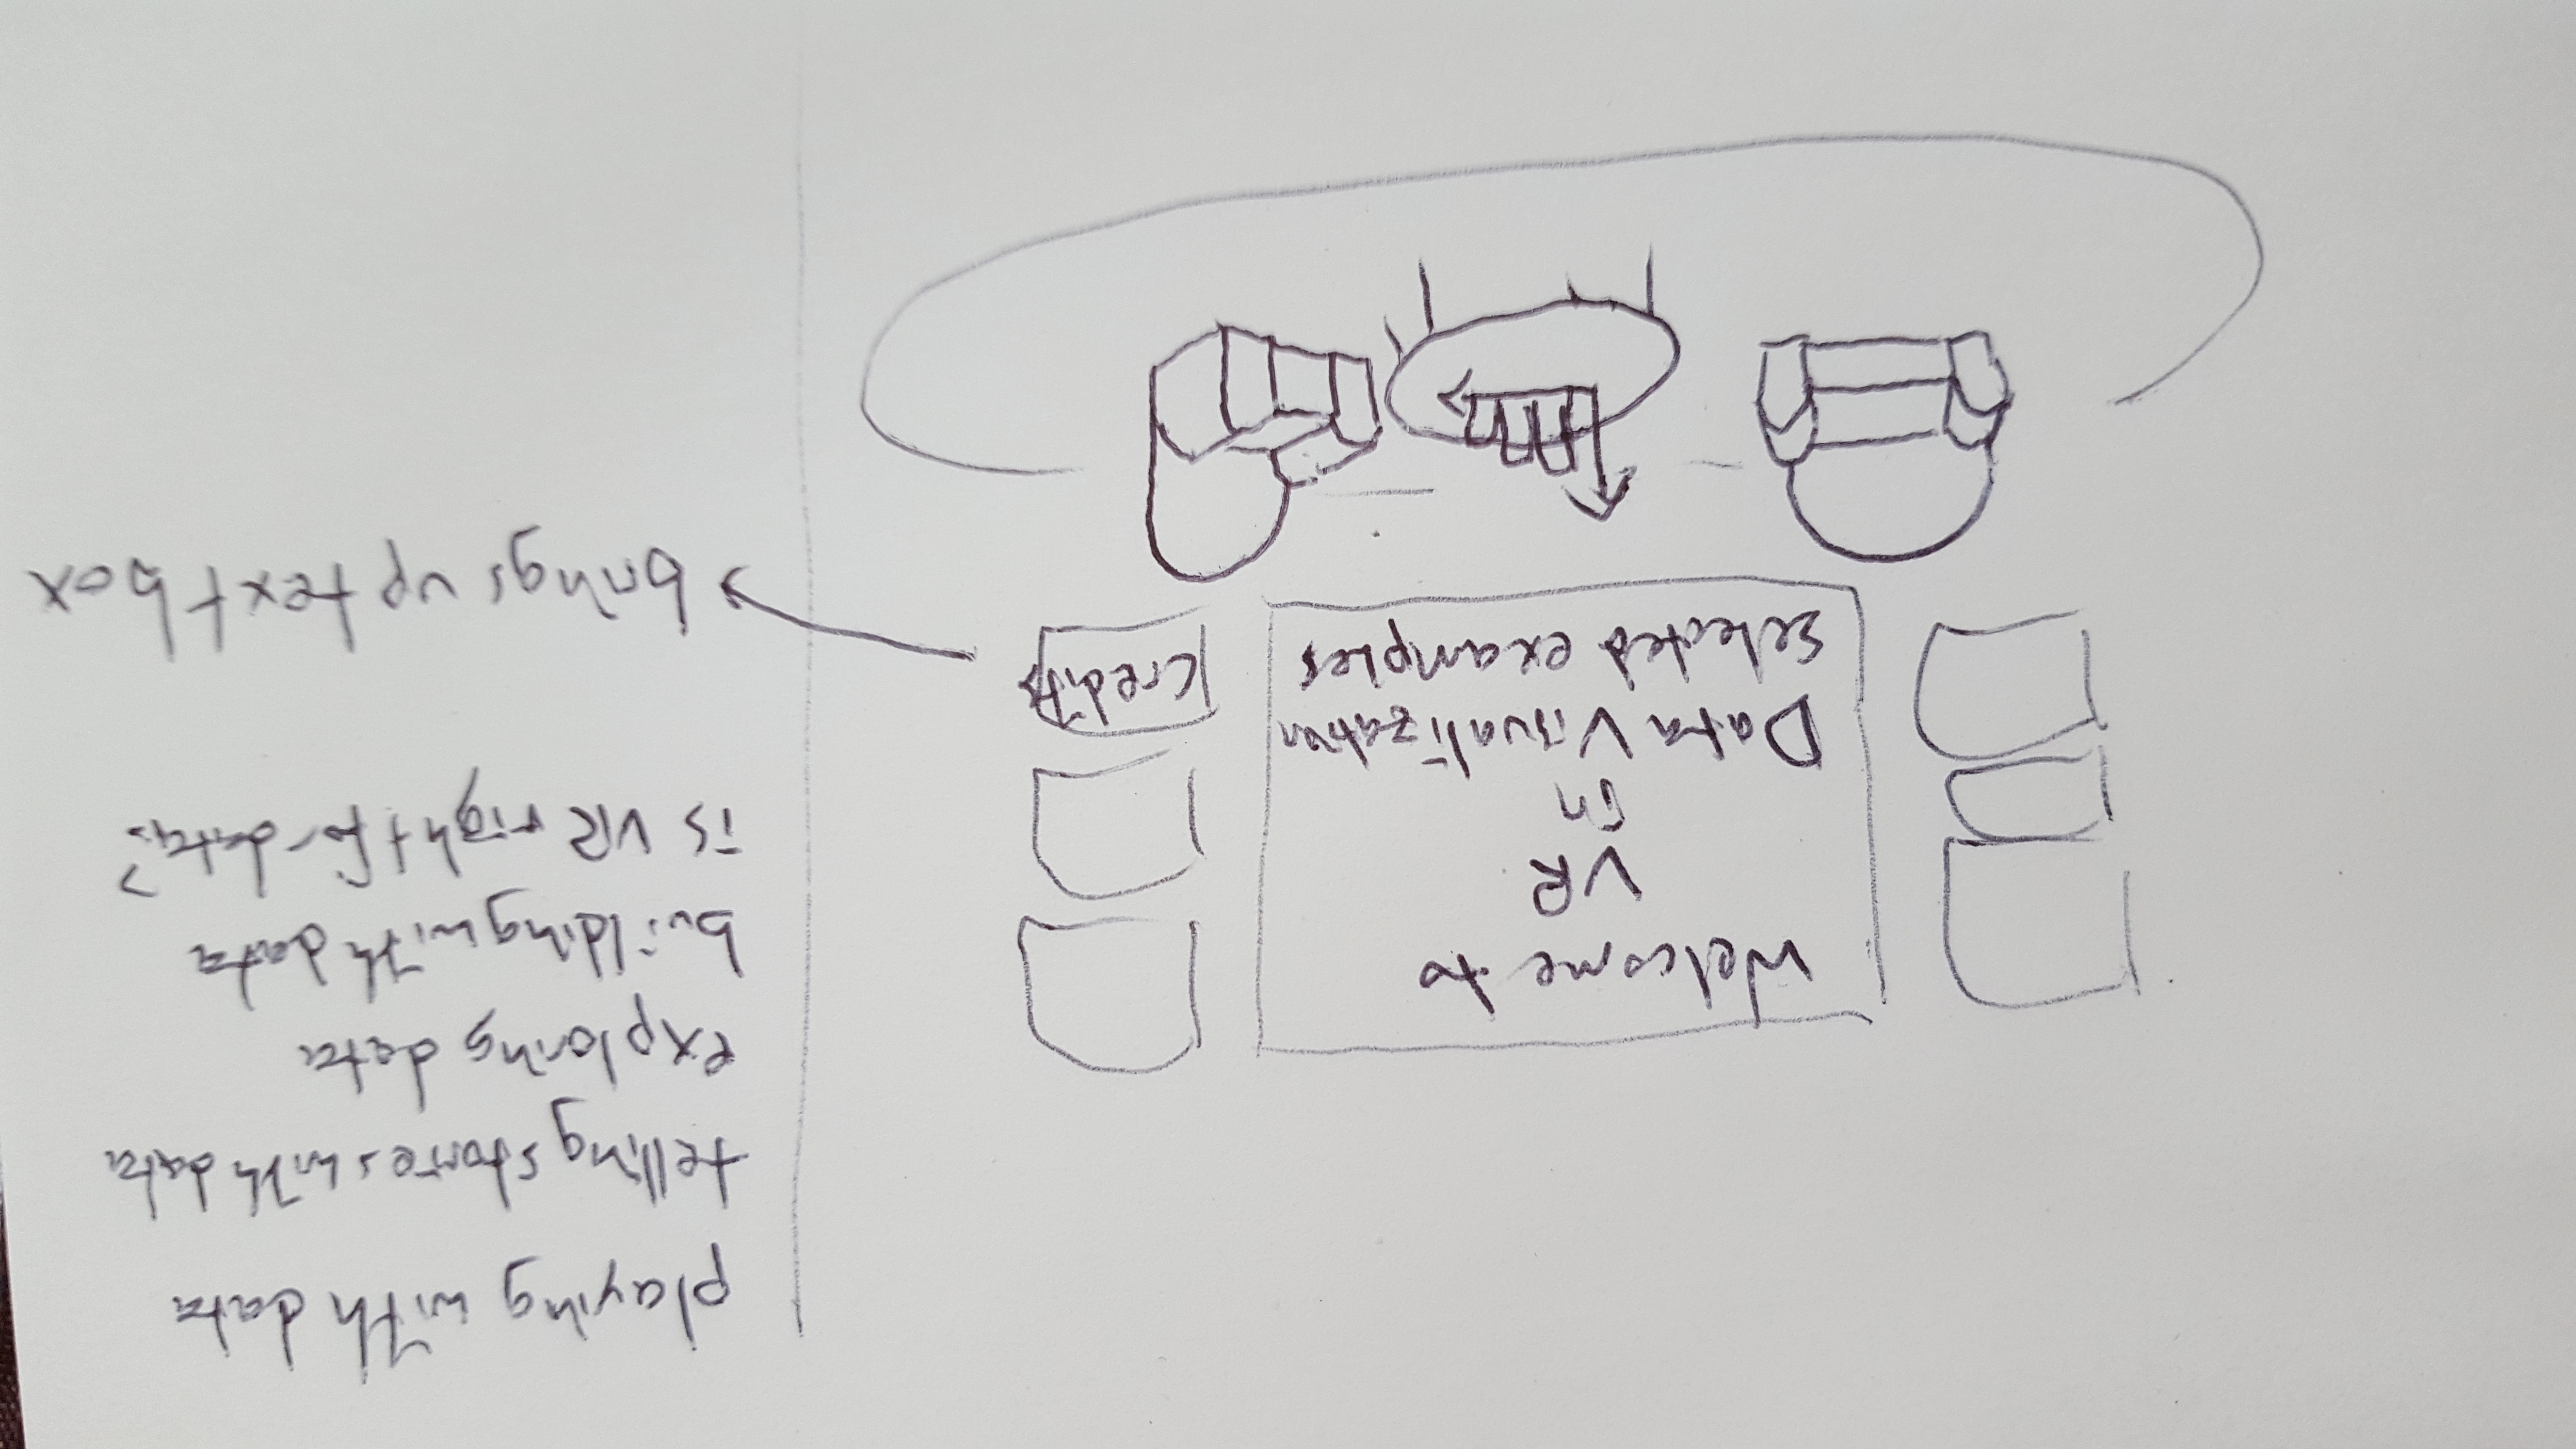 Welcome to
VR
in
Data Visualization
Selected examples
Credits
playing with data
telling stories with data
exploring data
building with data
is VR right for data?
brings up text box